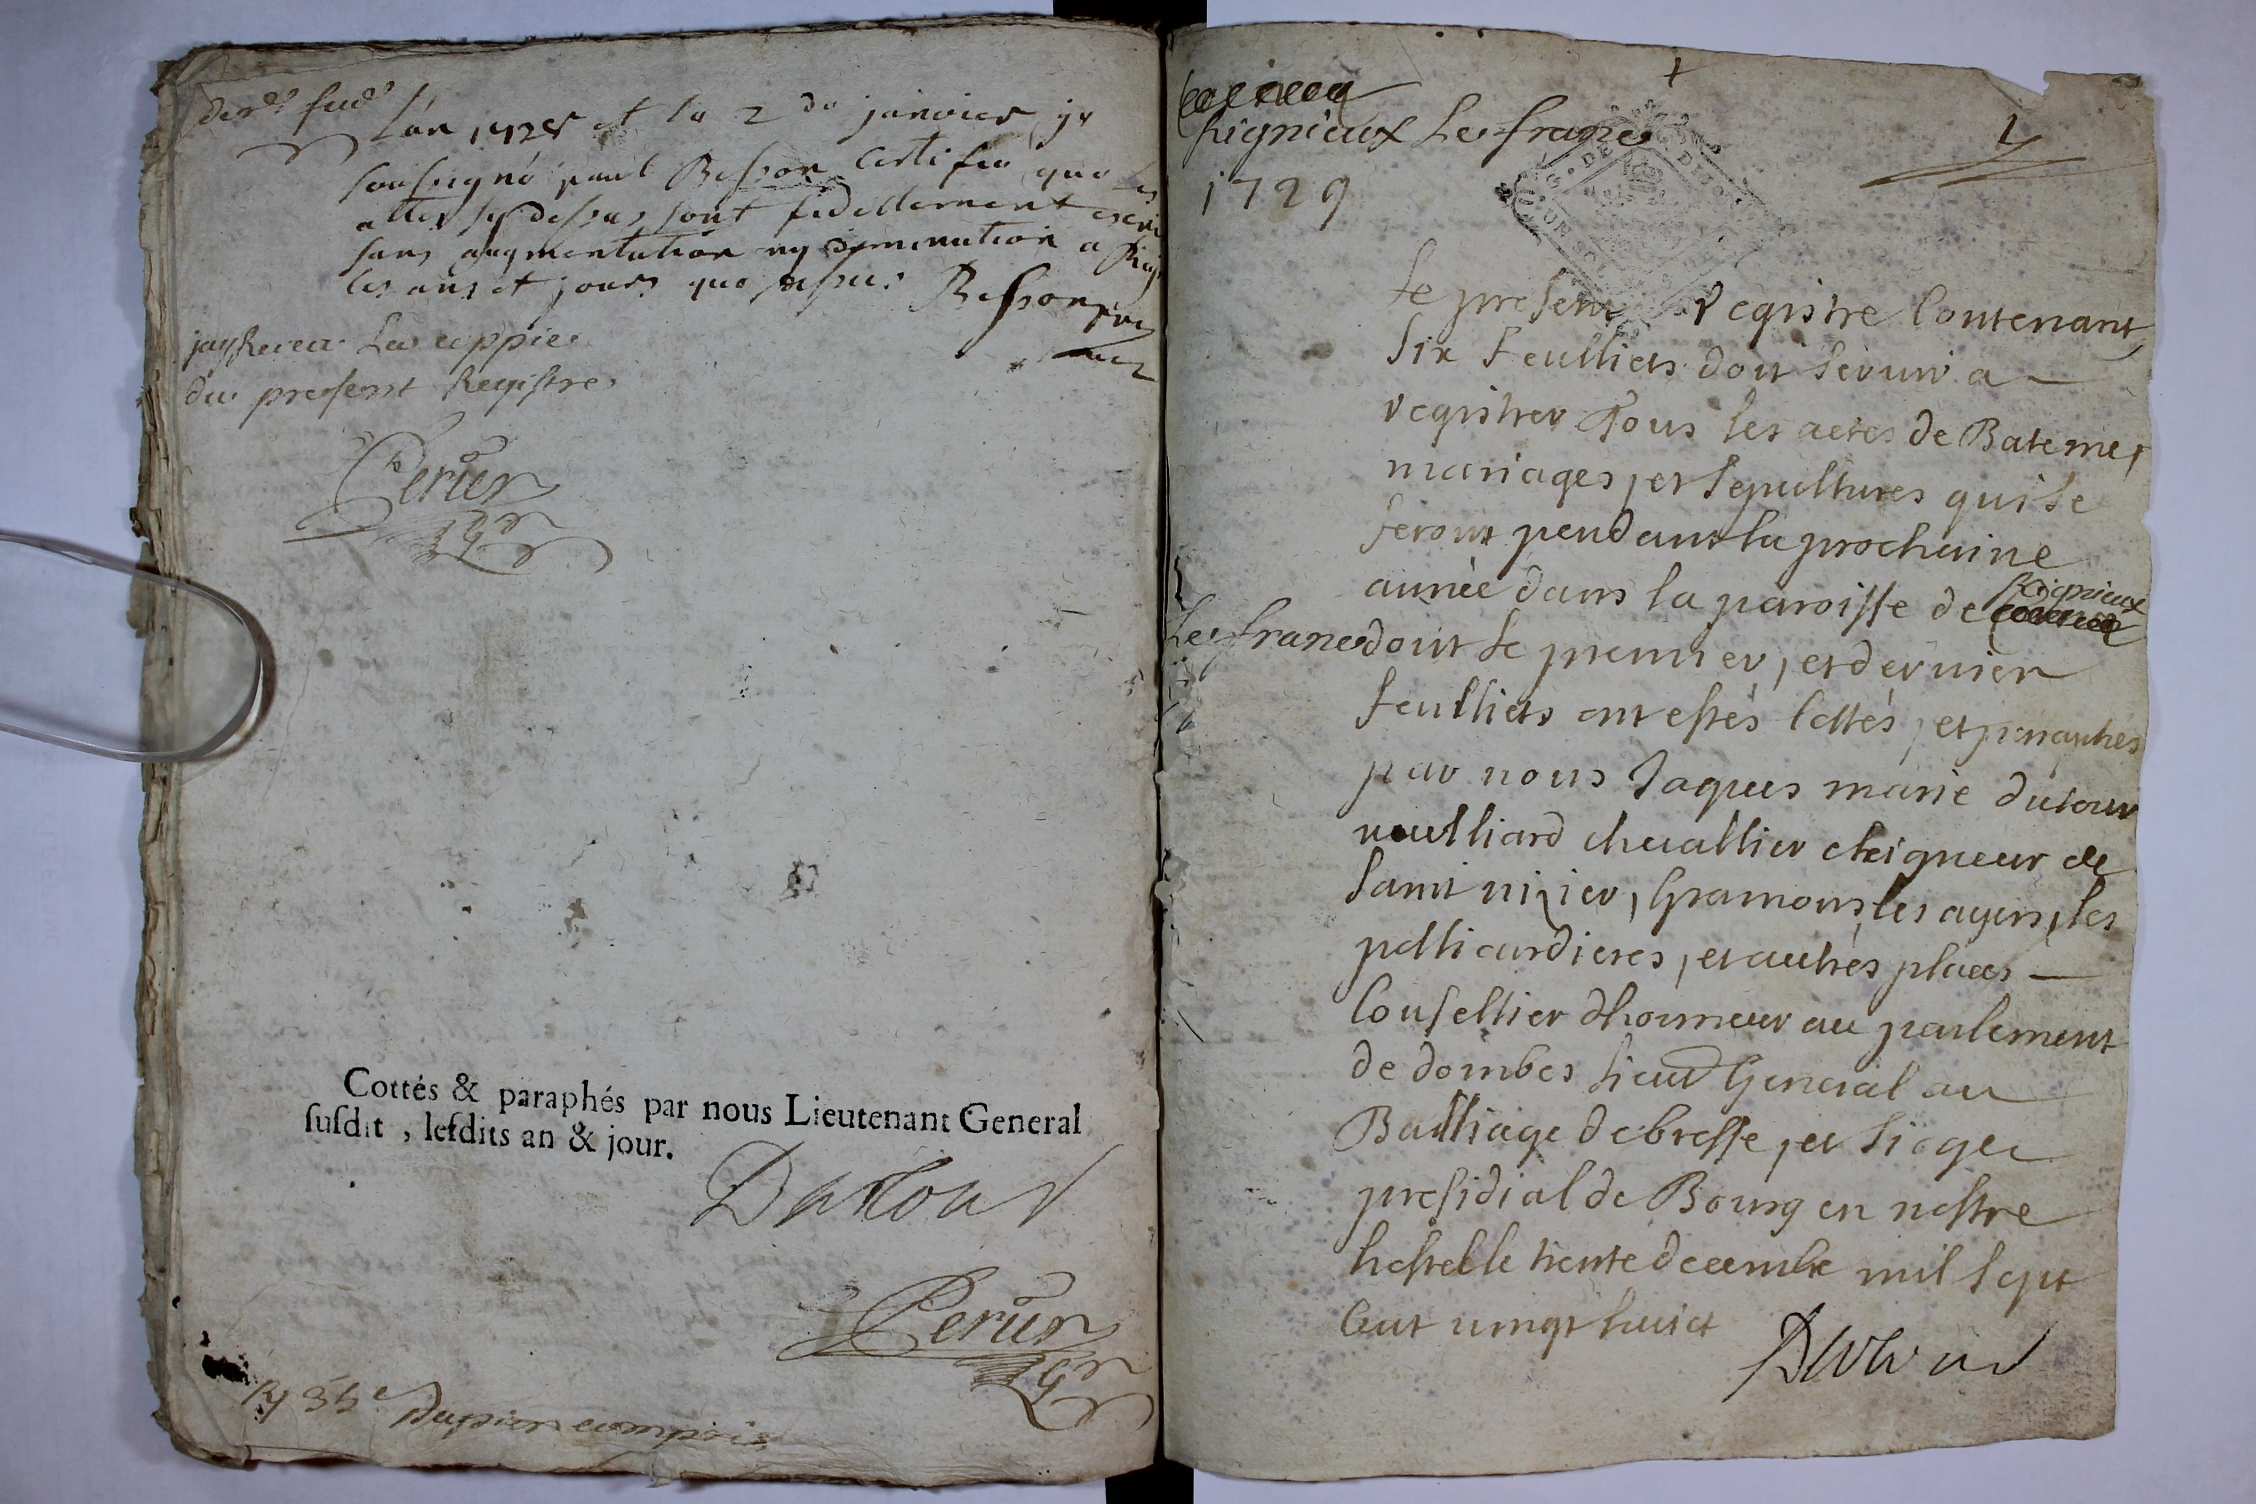 Lan 1728 et la 2 du janvier je
soubsigné paul Besson certifie que les
actes cy dessus sont fidellement
sans augmentation ny diminution a
les ans et jours que dessus Besson
jay Receu La coppie
du present Registre
Perier
Cottés & paraphés par nous Lieutenant General
susdit, lesdits an & jour.
Dutour
Perier
Dupapier compris
1
Rignieux Le franc
1729
Le present registre Contenant
six feulliets doit servir a
registrer Tous les actes de Batemes
mariages, et sepultures qui se
feront pendant la prochaine
année dans la paroisse de Rignieux
Le franc dont le premier, et dernier
feulliets ont estés cottés, et paraphés
par nous Jaques marie dutour
vuilliard chevallier seigneur de
saint nizier, Gramont, les ayens, les
pelliardieres, et autres places
Conseillier dhonneur au parlement
de dombes Lieut General au
Bailliage de bresse, et siege
presidial de Bourg en nostre
hostel le trente decembre mil sept
cent vingt huict
Dutour